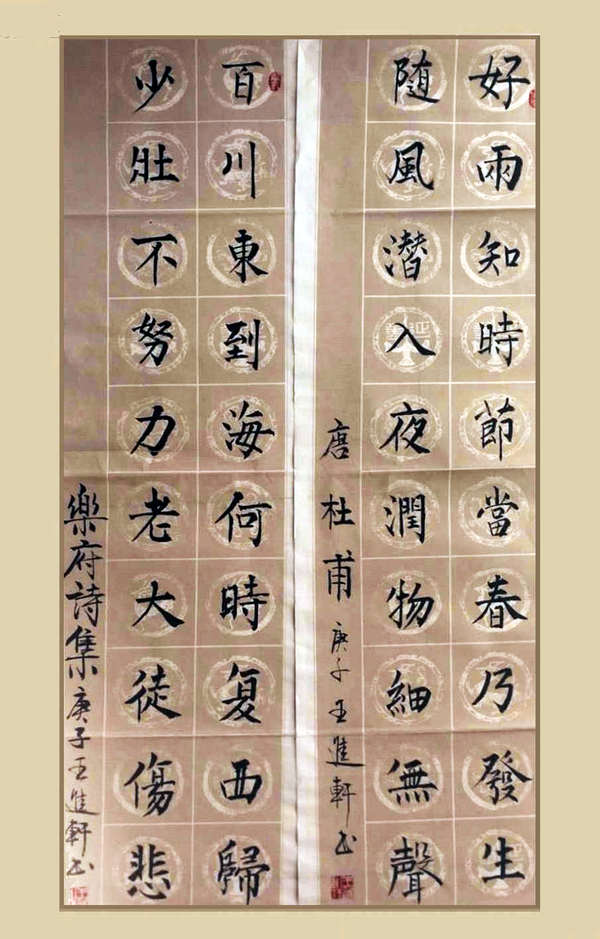 好雨知時節當春乃發生
隨風潛入夜潤物細無聲
唐杜甫庚子王進軒书
百川東到海何時复西歸
少壯不努力老大徒傷悲
樂府詩集庚子王進軒书